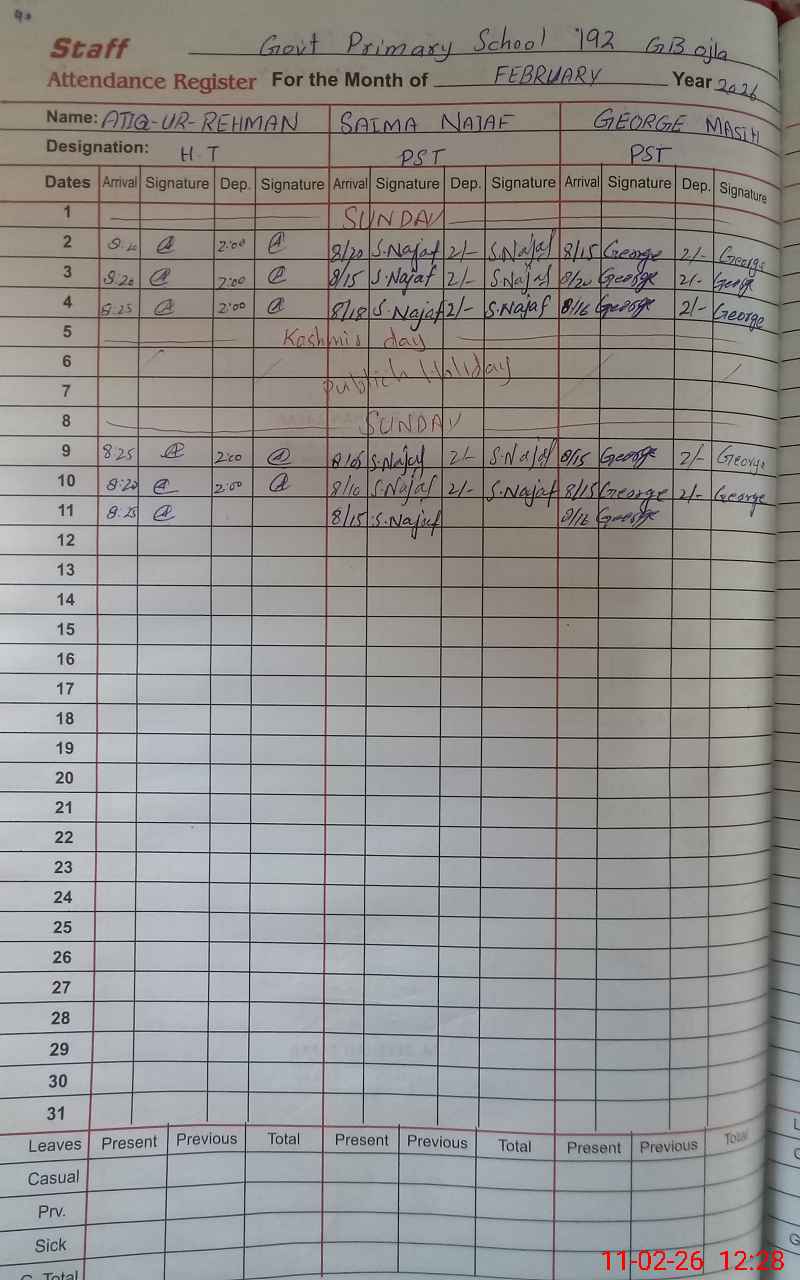 Staff Govt Primary School 192 GB ojla
Attendance Register For the Month of FEBRUARY Year 2026
Name: ATIQ-UR-REHMAN SAIMA NAJAF GEORGE MASIH
Designation: H.T PST PST
Dates Arrival Signature Dep. Signature Arrival Signature Dep. Signature Arrival Signature Dep. Signature
1 SUNDAY
2 8:20 2:00 8/20 S.Najaf 2/- S.Najaf 8/15 George 2/- George
3 8:20 2:00 8/15 S.Najaf 2/- S.Najaf 8/20 George 2/- George
4 8:25 2:00 8/18 S.Najaf 2/- S.Najaf 8/16 George 2/- George
5 Kashmir day
6 Publich Holiday
7
8 SUNDAY
9 8:25 2:00 8/05 S.Najaf 2/- S.Najaf 8/15 George 2/- George
10 8:20 2:00 8/10 S.Najaf 2/- S.Najaf 8/15 George 2/- George
11 8:25 8/15 S.Najaf 8/16 George
12
13
14
15
16
17
18
19
20
21
22
23
24
25
26
27
28
29
30
31
Leaves Present Previous Total Present Previous Total Present Previous Total
Casual
Prv.
Sick
G. Total
11-02-26 12:28